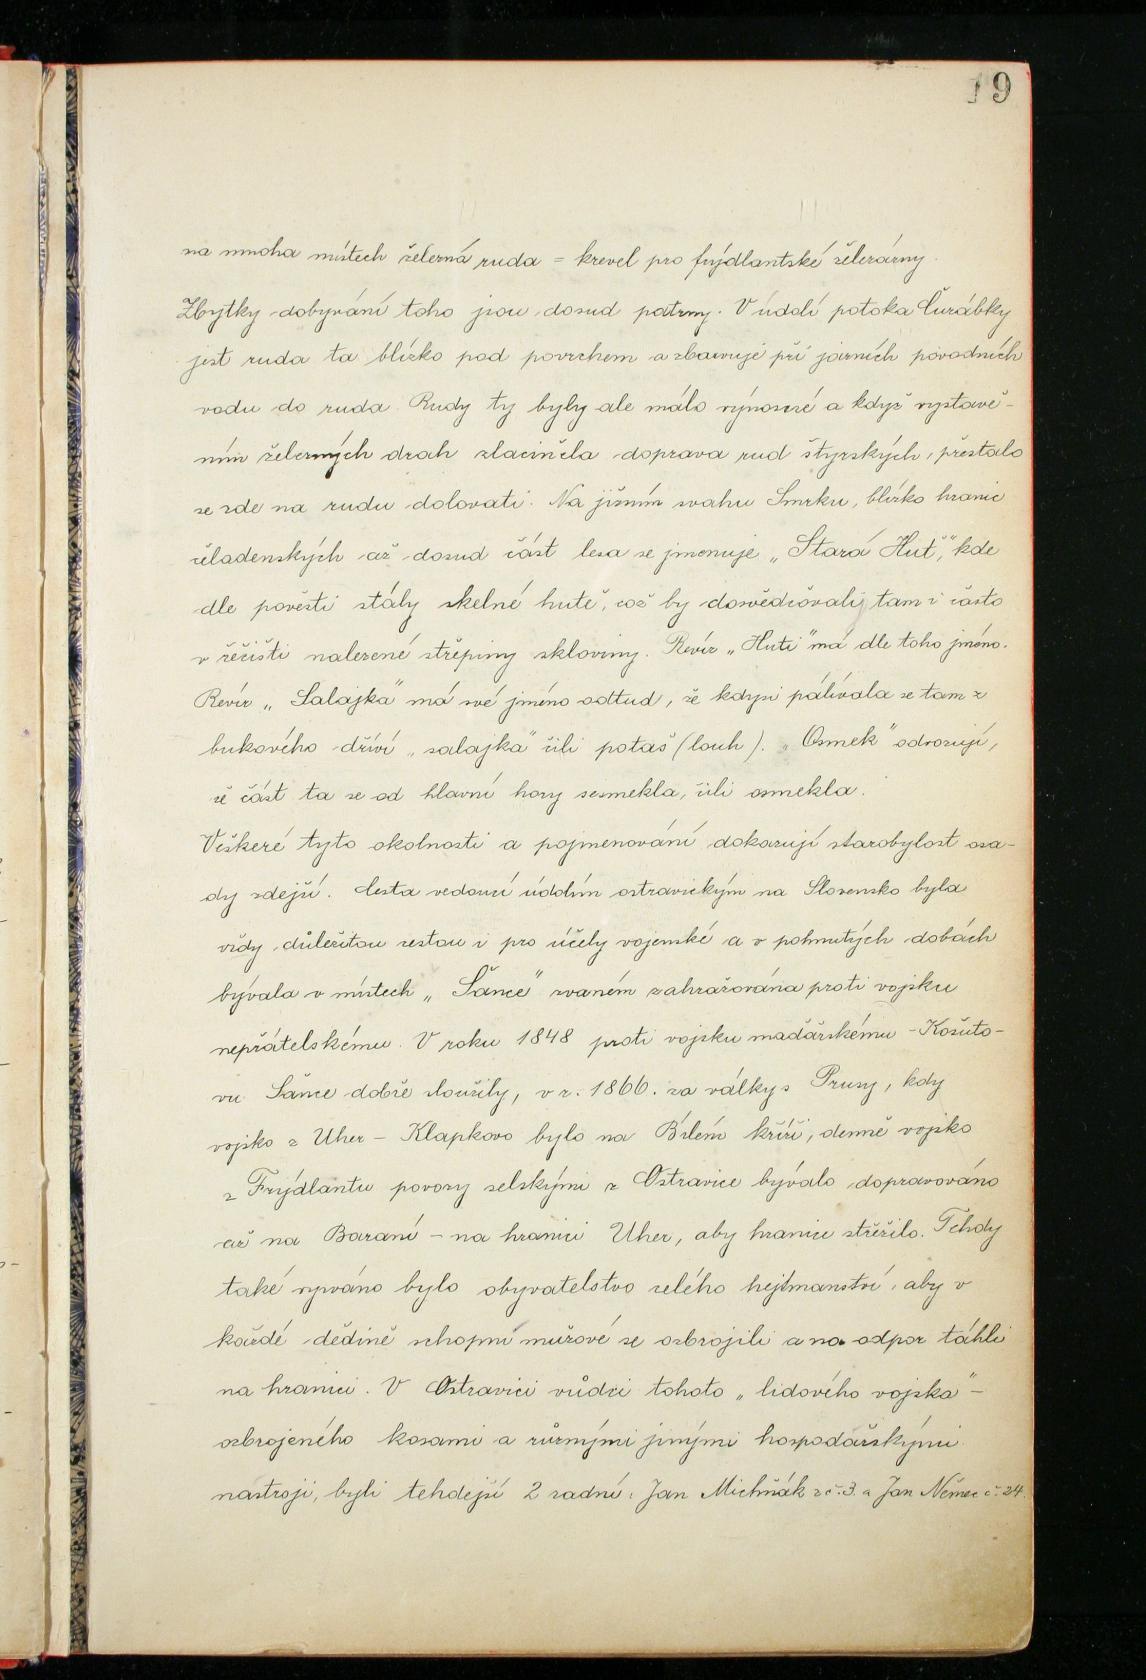 19
na mnoha místech železná ruda = krevel pro frýdlantské železárny.
Zbytky dobývání toho jsou dosud patrny. V údolí potoka Čurábky
jest ruda ta blízko pod povrchem a zbarvuje při jarních povodních
vodu do ruda. Rudy ty byly ale málo výnosné a když vystavě-
ním železných drah zlacinčla doprava rud štyrských, přestalo
se zde na rudu dolovati. Na jižním svahu Smrku, blízko hranic
čeladenských až dosud část lesa se jmenuje „Stará Huť", kde
dle pověsti stály skelné hutě, což by dosvědčovaly tam i často
v řečišti nalezené střepiny skloviny. Revír „Huti" má dle toho jméno.
Revír „Salajka" má své jméno odtud, že kdysi pálívala se tam z
bukového dříví „salajka" čili potaš (louh). „Osmek" odvozují,
že část ta se od hlavní hory sesmekla, čili osmekla.
Veškeré tyto okolnosti a pojmenování dokazují starobylost osa-
dy zdejší. Cesta vedoucí údolím ostravickým na Slovensko byla
vždy důležitou cestou i pro účely vojenské a v pohnutých dobách
bývala v místech „Šance" zvaném zahražována proti vojsku
nepřátelskému. V roku 1848 proti vojsku maďářskému - Košuto-
vu Šance dobře sloužily, v r. 1866. za války s Prusy, kdy
vojsko z Uher - Klapkovo bylo na Bílém kříži, denně vojsko
z Frýdlantu povozy selskými z Ostravice bývalo dopravováno
až na Baraní - na hranici Uher, aby hranice střežilo. Tehdy
také vyzváno bylo obyvatelstvo celého hejtmanství, aby v
každé dědině schopní mužové se ozbrojili a na odpor táhli
na hranici. V Ostravici vůdci tohoto „lidového vojska" -
ozbrojeného kosami a různými jinými hospodářskými
nástroji, byli tehdejší 2 radní: Jan Michňák z č. 3. a Jan Němec č. 24.